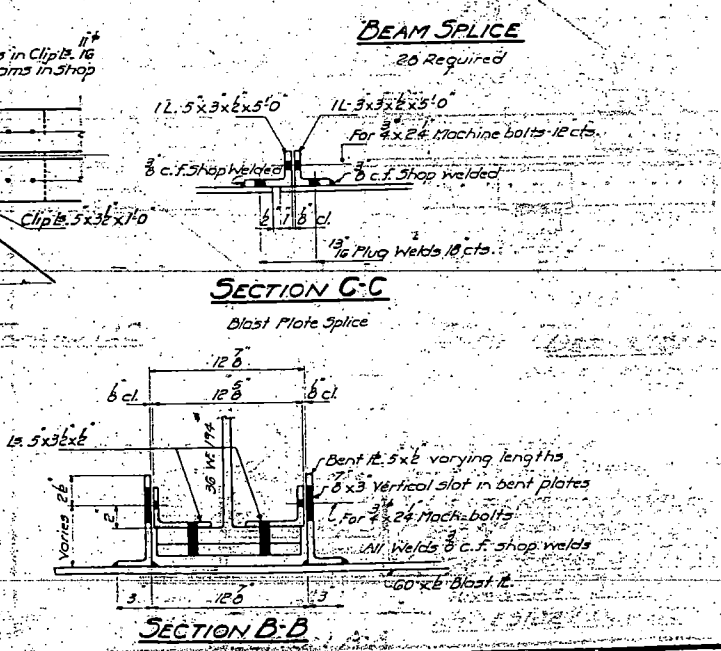 BEAM SPLICE
28 Required
s in Clip ℔. 11"⌀
16
oms in Shop
1L-5"x3"x½"x5'-0"
1L-3"x3"x½"x5'-0"
For ¾"x2¼" Machine bolts-12"cts.
⅜" c.f. Shop Welded
⅜" c.f. Shop welded
Clip ℔. 5"x3½"x1'-0"
½" 1" ⅛" cl.
13/16" Plug Welds 18"cts.
SECTION C-C
Blast Plate Splice
12⅞"
⅛" cl. 12⅝" ⅛" cl.
Ls. 5"x3½"x½"
36 WF 194#
Bent ℔. 5"x½" varying lengths
⅞"x3" Vertical slot in bent plates
For ¾"x2¼" Mach. bolts
All Welds ⅜" c.f. shop welds
60"x½" Blast ℔.
Varies 2½"
2"
3 12⅞" 3
SECTION B-B